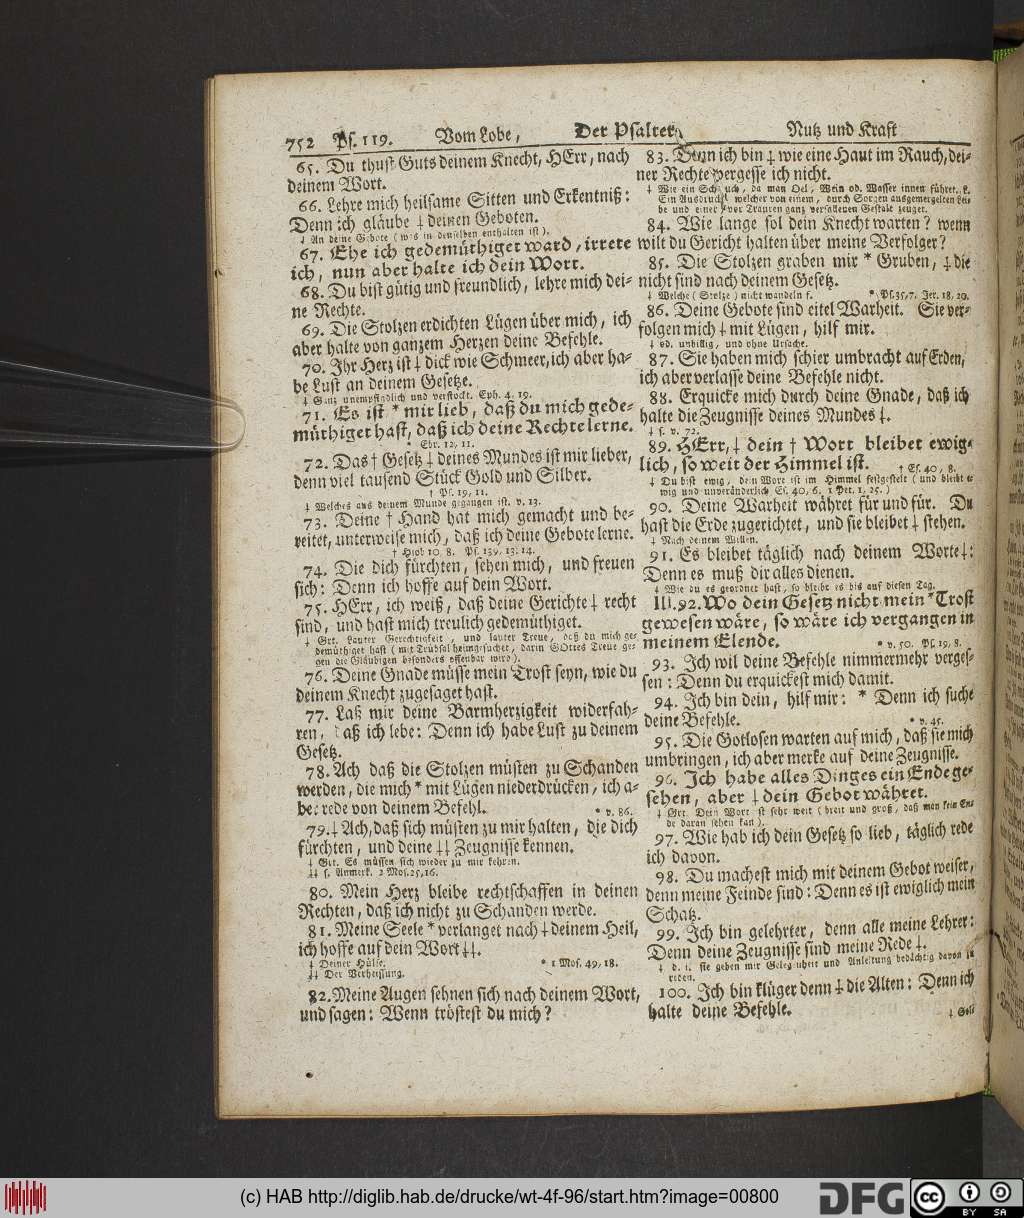 752 Ps. 119. Vom Lobe, Der Psalter, Nutz und Kraft
65. Du thust Guts deinem Knecht, HErr, nach
deinem Wort.
66. Lehre mich heilsame Sitten und Erkentniß:
Denn ich gläube ‡ deinen Geboten.
‡ An deine Gebote (was in denselben enthalten ist).
67. Ehe ich gedemüthiget ward, irrete
ich, nun aber halte ich dein Wort.
68. Du bist gütig und freundlich, lehre mich dei-
ne Rechte.
69. Die Stolzen erdichten Lügen über mich, ich
aber halte von ganzem Herzen deine Befehle.
70. Ihr Herz ist ‡ dick wie Schmeer, ich aber ha-
be Lust an deinem Gesetze.
‡ Ganz unempfindlich und verstockt. Eph. 4, 19.
71. Es ist * mir lieb, daß du mich gede-
müthiget hast, daß ich deine Rechte lerne.
* Ebr. 12, 11.
72. Das † Gesetz ‡ deines Mundes ist mir lieber,
denn viel tausend Stück Gold und Silber.
† Ps. 19, 11.
‡ Welches aus deinem Munde gegangen ist. v. 13.
73. Deine † Hand hat mich gemacht und be-
reitet, unterweise mich, daß ich deine Gebote lerne.
† Hiob 10, 8. Ps. 139, 13. 14.
74. Die dich fürchten, sehen mich, und freuen
sich: Denn ich hoffe auf dein Wort.
75. HErr, ich weiß, daß deine Gerichte ‡ recht
sind, und hast mich treulich gedemüthiget.
‡ Grt. Lauter Gerechtigkeit, und lauter Treue, daß du mich ge-
demüthiget hast (mit Trübsal heimgesuchet, darin GOttes Treue ge-
gen die Gläubigen besonders offenbar wird).
76. Deine Gnade müsse mein Trost seyn, wie du
deinem Knecht zugesaget hast.
77. Laß mir deine Barmherzigkeit widerfah-
ren, daß ich lebe: Denn ich habe Lust zu deinem
Gesetz.
78. Ach daß die Stolzen müsten zu Schanden
werden, die mich * mit Lügen niederdrücken, ich a-
ber rede von deinem Befehl. * v. 86.
79. ‡ Ach, daß sich müsten zu mir halten, die dich
fürchten, und deine ‡‡ Zeugnisse kennen.
‡ Grt. Es müssen sich wieder zu mir kehren.
‡‡ s. Anmerk. 2 Mos. 25, 16.
80. Mein Herz bleibe rechtschaffen in deinen
Rechten, daß ich nicht zu Schanden werde.
81. Meine Seele * verlanget nach ‡ deinem Heil,
ich hoffe auf dein Wort ‡‡.
‡ Deiner Hülfe. * 1 Mos. 49, 18.
‡‡ Der Verheissung.
82. Meine Augen sehnen sich nach deinem Wort,
und sagen: Wenn tröstest du mich?
83. Denn ich bin ‡ wie eine Haut im Rauch, dei-
ner Rechte vergesse ich nicht.
‡ Wie ein Schlauch, da man Oel, Wein od. Wasser innen führet.
Ein Ausdruck welcher von einem, durch Sorgen ausgemergelten Lei-
be und einer vor Trauren ganz verfallenen Gestalt zeuget.
84. Wie lange sol dein Knecht warten? wenn
wilt du Gericht halten über meine Verfolger?
85. Die Stolzen graben mir * Gruben, ‡ die
nicht sind nach deinem Gesetz.
‡ Welche (Stolze) nicht wandeln s. * Ps. 35, 7. Jer. 18, 20.
86. Deine Gebote sind eitel Warheit. Sie ver-
folgen mich ‡ mit Lügen, hilf mir.
‡ od. unbillig, und ohne Ursache.
87. Sie haben mich schier umbracht auf Erden,
ich aber verlasse deine Befehle nicht.
88. Erquicke mich durch deine Gnade, daß ich
halte die Zeugnisse deines Mundes ‡.
‡ s. v. 72.
89. HErr, ‡ dein † Wort bleibet ewig-
lich, so weit der Himmel ist. † Es. 40, 8.
‡ Du bist ewig, dein Wort ist im Himmel festgestelt (und bleibt e-
wig und unveränderlich Es. 40, 6. 1 Pet. 1, 25.)
90. Deine Warheit währet für und für. Du
hast die Erde zugerichtet, und sie bleibet ‡ stehen.
‡ Nach deinem Willen.
91. Es bleibet täglich nach deinem Worte ‡:
Denn es muß dir alles dienen.
‡ Wie du es geordnet hast, so bleibt es bis auf diesen Tag.
III. 92. Wo dein Gesetz nicht mein * Trost
gewesen wäre, so wäre ich vergangen in
meinem Elende. * v. 50. Ps. 19, 8.
93. Ich wil deine Befehle nimmermehr verges-
sen: Denn du erquickest mich damit.
94. Ich bin dein, hilf mir: * Denn ich suche
deine Befehle. * v. 45.
95. Die Gotlosen warten auf mich, daß sie mich
umbringen, ich aber merke auf deine Zeugnisse.
96. Ich habe alles Dinges ein Ende ge-
sehen, aber ‡ dein Gebot währet.
‡ Grt. Dein Wort ist sehr weit (breit und groß, daß man kein En-
de daran sehen kan).
97. Wie hab ich dein Gesetz so lieb, täglich rede
ich davon.
98. Du machest mich mit deinem Gebot weiser,
denn meine Feinde sind: Denn es ist ewiglich mein
Schatz.
99. Ich bin gelehrter, denn alle meine Lehrer:
Denn deine Zeugnisse sind meine Rede ‡.
‡ d. i. sie geben mir Gelegenheit und Anleitung bedächtig davon zu
reden.
100. Ich bin klüger denn ‡ die Alten: Denn ich
halte deine Befehle.
‡ Goli
(c) HAB http://diglib.hab.de/drucke/wt-4f-96/start.htm?image=00800
DFG
cc BY SA